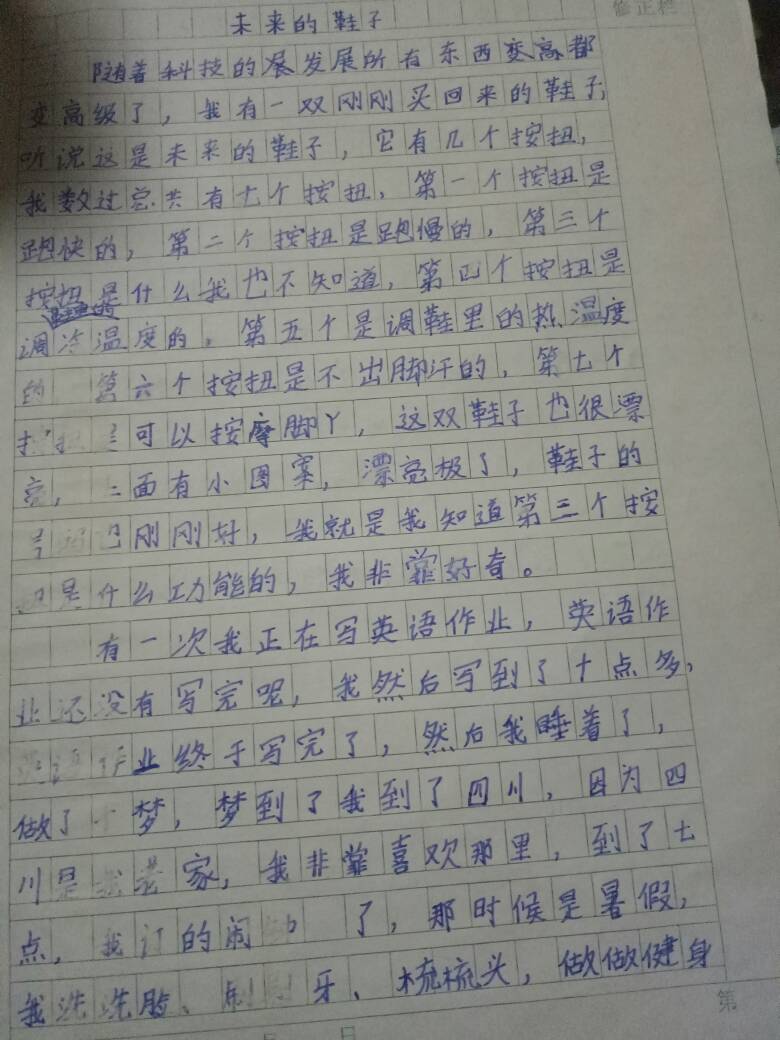 修正栏
未来的鞋子
随着科技的展发展所有东西变高都
变高级了，我有一双刚刚买回来的鞋子，
听说这是未来的鞋子，它有几个按扭，
我数过总共有七个按扭，第一个按扭是
跑快的，第二个按扭是跑慢的，第三个
按扭是什么我也不知道，第四个按扭是
调冷温度的。第五个是调鞋里的热温度
的 第六个按扭是不出脚汗的，第七个
可以按摩脚丫，这双鞋子也很漂
亮，面有小图案，漂亮极了，鞋子的
刚刚好，我就是我知道第三个按
是什么功能的，我非常好奇。
有一次我正在写英语作业，英语作
业还没有写完呢，我然后写到了十点多，
作业终于写完了，然后我睡着了，
做了个梦，梦到了我到了四川，因为四
川是我老家，我非常喜欢那里，到了七
点，我订的闹 了，那时候是暑假，
我洗洗脸、刷刷牙、梳梳头，做做健身
第
月 日